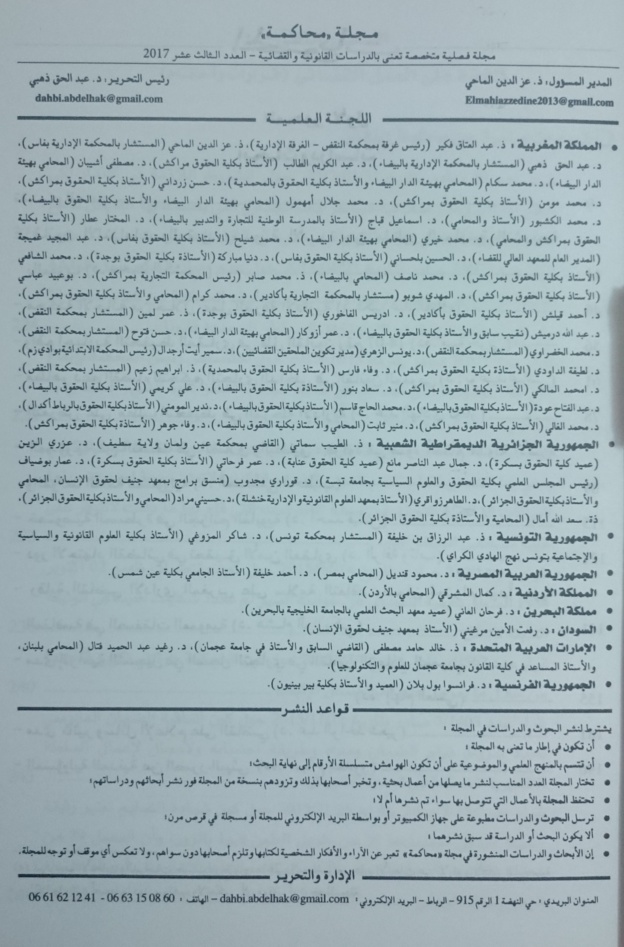 مجلة «محاكمة»
مجلة فصلية متخصصة تعنى بالدراسات القانونية والقضائية - العدد الثالث عشر 2017
المدير المسؤول: ذ. عز الدين الماحي
رئيس التحرير: د. عبد الحق ذهبي
Elmahiazzedine2013@gmail.com
dahbi.abdelhak@gmail.com
اللجنة العلمية
• المملكة المغربية: ذ. عبد العتاق فكير (رئيس غرفة بمحكمة النقض - الغرفة الإدارية)، ذ. عز الدين الماحي (المستشار بالمحكمة الإدارية بفاس)،
د. عبد الحق ذهبي (المستشار بالمحكمة الإدارية بالبيضاء)، د. عبد الكريم الطالب (الأستاذ بكلية الحقوق مراكش)، د. مصطفى أشيبان (المحامي بهيئة
الدار البيضاء)، د. محمد سكام (المحامي بهيئة الدار البيضاء والأستاذ بكلية الحقوق بالمحمدية)، د. حسن زرداني (الأستاذ بكلية الحقوق بمراكش)،
د. محمد مومن (الأستاذ بكلية الحقوق بمراكش)، د. محمد جلال أمهمول (المحامي بهيئة الدار البيضاء والأستاذ بكلية الحقوق بالبيضاء)،
د. محمد الكشبور (الأستاذ والمحامي)، د. اسماعيل قباج (الأستاذ بالمدرسة الوطنية للتجارة والتدبير بالبيضاء)، د. المختار عطار (الأستاذ بكلية
الحقوق بمراكش والمحامي)، د. محمد خيري (المحامي بهيئة الدار البيضاء)، د. محمد شيلح (الأستاذ بكلية الحقوق بفاس)، د. عبد المجيد غميجة
(المدير العام للمعهد العالي للقضاء)، د. الحسين بلحساني (الأستاذ بكلية الحقوق بفاس)، د. دنيا مباركة (الأستاذة بكلية الحقوق بوجدة)، د. محمد الشافعي
(الأستاذ بكلية الحقوق بمراكش)، د. محمد ناصف (المحامي بالبيضاء)، ذ. محمد صابر (رئيس المحكمة التجارية بمراكش)، د. بوعبيد عباسي
(الأستاذ بكلية الحقوق بمراكش)، د. المهدي شوبو (مستشار بالمحكمة التجارية بأكادير)، د. محمد كرام (المحامي والأستاذ بكلية الحقوق بمراكش)،
د. أحمد قيلش (الأستاذ بكلية الحقوق بأكادير)، د. ادريس الفاخوري (الأستاذ بكلية الحقوق بوجدة)، ذ. عمر لمين (المستشار بمحكمة النقض)،
د. عبد الله درميش (نقيب سابق والأستاذ بكلية الحقوق بالبيضاء)، د. عمر أزوكار (المحامي بهيئة الدار البيضاء)، د. حسن فتوح (المستشار بمحكمة النقض)،
د. محمد الخضراوي (المستشار بمحكمة النقض)، د. يونس الزهري (مدير تكوين الملحقين القضائيين)، د. سمير آيت أرجدال (رئيس المحكمة الابتدائية بوادي زم)،
د. لطيفة الداودي (الأستاذة بكلية الحقوق بمراكش)، د. وفاء فارس (الأستاذة بكلية الحقوق بالمحمدية)، ذ. ابراهيم زعيم (المستشار بمحكمة النقض)،
د. امحمد المالكي (الأستاذ بكلية الحقوق بمراكش)، د. سعاد بنور (الأستاذة بكلية الحقوق بالبيضاء)، د. علي كريمي (الأستاذ بكلية الحقوق بالبيضاء)،
د. عبد الفتاح عودة (الأستاذ بكلية الحقوق بالبيضاء)، د. محمد الحاج قاسم (الأستاذ بكلية الحقوق بالبيضاء)، د. ندير المومني (الأستاذ بكلية الحقوق بالرباط أكدال)،
د. محمد الغالي (الأستاذ بكلية الحقوق بمراكش)، د. منير ثابت (المحامي والأستاذ بكلية الحقوق بالبيضاء)، د. وفاء جوهر (الأستاذة بكلية الحقوق بمراكش).
• الجمهورية الجزائرية الديمقراطية الشعبية: ذ. الطيب سماتي (القاضي بمحكمة عين ولمان ولاية سطيف)، د. عزري الزين
(عميد كلية الحقوق بسكرة)، د. جمال عبد الناصر مانع (عميد كلية الحقوق عنابة)، د. عمر فرحاتي (الأستاذ بكلية الحقوق بسكرة)، د. عمار بوضياف
(رئيس المجلس العلمي بكلية الحقوق والعلوم السياسية بجامعة تبسة)، د. قوراري مجدوب (منسق برامج بمعهد جنيف لحقوق الإنسان، المحامي
والأستاذ بكلية الحقوق الجزائر)، د. الطاهر زواقري (الأستاذ بمعهد العلوم القانونية والإدارية خنشلة)، د. حسيني مراد (المحامي والأستاذ بكلية الحقوق الجزائر)،
ذة. سعد الله أمال (المحامية والأستاذة بكلية الحقوق الجزائر).
• الجمهورية التونسية: ذ. عبد الرزاق بن خليفة (المستشار بمحكمة تونس)، د. شاكر المزوغي (الأستاذ بكلية العلوم القانونية والسياسية
والإجتماعية بتونس نهج الهادي الكراي).
• الجمهورية العربية المصرية: د. محمود قنديل (المحامي بمصر)، د. أحمد خليفة (الأستاذ الجامعي بكلية عين شمس).
• المملكة الأردنية: د. كمال المشرقي (المحامي بالأردن).
• مملكة البحرين: د. فرحان العاني (عميد معهد البحث العلمي بالجامعة الخليجية بالبحرين).
• السودان: د. رفعت الأمين مرغيني (الأستاذ بمعهد جنيف لحقوق الإنسان).
• الإمارات العربية المتحدة: ذ. خالد حامد مصطفى (القاضي السابق والأستاذ في جامعة عجمان)، د. رغيد عبد الحميد فتال (المحامي بلبنان،
والأستاذ المساعد في كلية القانون بجامعة عجمان للعلوم والتكنولوجيا).
• الجمهورية الفرنسية: د. فرانسوا بول بلان (العميد والأستاذ بكلية بير بينيون).
قواعد النشر
يشترط لنشر البحوث والدراسات في المجلة:
• أن تكون في إطار ما تعنى به المجلة؛
• أن تتسم بالمنهج العلمي والموضوعية على أن تكون الهوامش متسلسلة الأرقام إلى نهاية البحث؛
• تختار المجلة العدد المناسب لنشر ما يصلها من أعمال بحثية، وتخبر أصحابها بذلك وتزودهم بنسخة من المجلة فور نشر أبحاثهم ودراساتهم؛
• تحتفظ المجلة بالأعمال التي تتوصل بها سواء تم نشرها أم لا؛
• ترسل البحوث والدراسات مطبوعة على جهاز الكمبيوتر أو بواسطة البريد الإلكتروني للمجلة أو مسجلة في قرص مرن؛
• ألا يكون البحث أو الدراسة قد سبق نشرهما؛
• إن الأبحاث والدراسات المنشورة في مجلة «محاكمة» تعبر عن الآراء والأفكار الشخصية لكتابها وتلزم أصحابها دون سواهم، ولا تعكس أي موقف أو توجه للمجلة.
الإدارة والتحرير
العنوان البريدي: حي النهضة 1 الرقم 915 - الرباط - البريد الإلكتروني: dahbi.abdelhak@gmail.com - الهاتف: 0663150860 - 0661621241